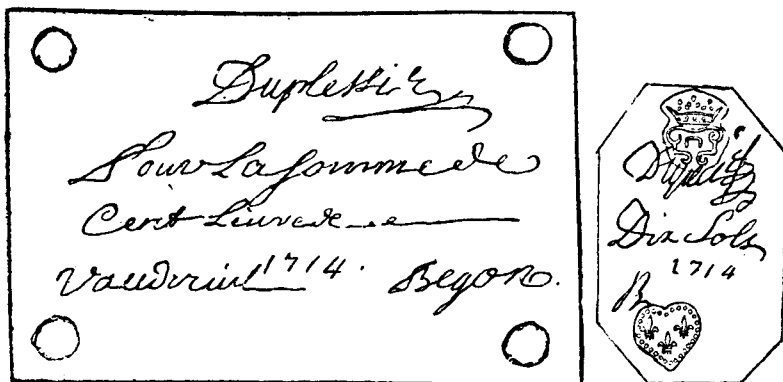 Duplessis
Pour La Somme de
Cent Livres
Vaudreuil 1714. Begon.
Dix Sols
1714
B